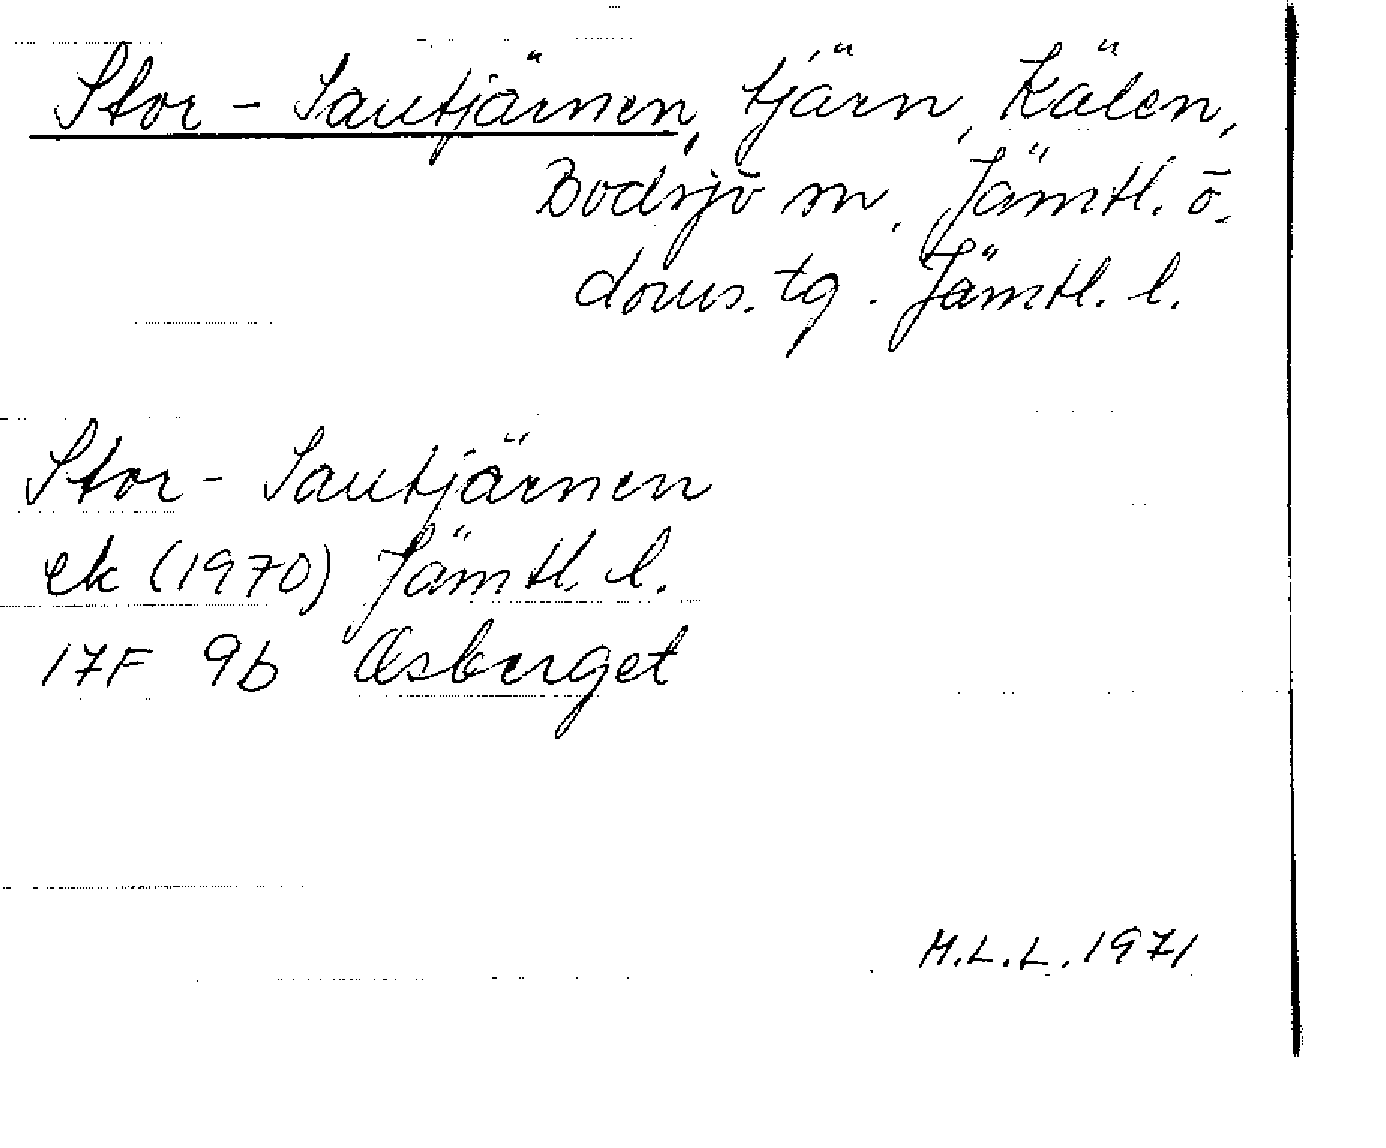 Stor-Sautjärnen, tjärn, Kälen,
Bodsjö sn, Jämtl. ö.
doms. tg. Jämtl. l.
Stor-Sautjärnen
ek (1970) Jämtl. l.
17F 9b Åsberget
M.L.L. 1971